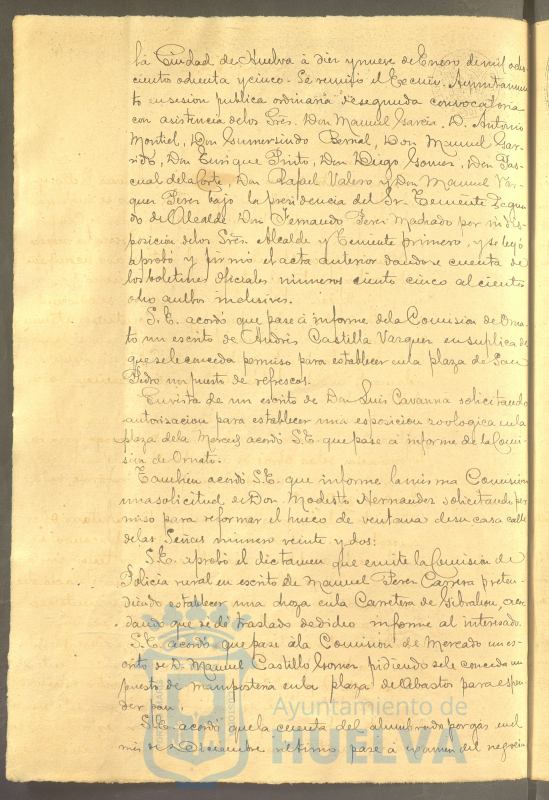 la Ciudad de Huelva á diez y nueve de Enero de mil ocho
cientos ochenta y cinco. Se reunió el Excmo. Ayuntamien
to en sesion publica ordinaria de segunda convocatoria
con asistencia de los Sres. Don Manuel Garcia, D. Antonio
Montiel, Don Gumersindo Bernal, Don Manuel Gar
rido, Don Enrique Pinto, Don Diego Gomez, Don Pas
cual de la Corte, Don Rafael Valero y Don Manuel Vaz
quez Perez bajo la presidencia del Sr. Teniente Segun
do de Alcalde Don Fernando Perez Machado por indis
posicion de los Sres. Alcalde y Teniente primero, y se leyó
aprobó y firmó el acta anterior dandose cuenta de
los boletines oficiales numeros ciento cinco al ciento
ocho ambos inclusives.
S.E. acordó que pase á informe de la Comision de Orna
to un escrito de Andrés Castilla Vazquez en suplica de
que se le conceda permiso para establecer en la plaza de San
Pedro un puesto de refrescos.
En vista de un escrito de Don Luis Cavanna solicitando
autorizacion para establecer una esposicion zoologica en la
plaza de la Merced, acordó S.E. que pase á informe de la Comi
sion de Ornato.
Tambien acordó S.E. que informe la misma Comision
una solicitud de Don Modesto Hernandez solicitando per
miso para reformar el hueco de ventana de su casa calle
de las Señas numero veinte y dos.
S.E. aprobó el dictamen que emite la Comision de
Policia rural en escrito de Manuel Perez Carrera preten
diendo establecer una choza en la Carretera de Gibraleon, acor
dando que se dé traslado de dicho informe al interesado.
S.E. acordó que pase á la Comision de Mercado un es
crito de D. Manuel Castillo Gomez pidiendo se le conceda un
puesto de mamposteria en la plaza de Abastos para espen
der pan.
S.E. acordó que la cuenta del alumbrado por gas en el
mes de Diciembre ultimo pase á examen del negocia
Ayuntamiento de
HUELVA